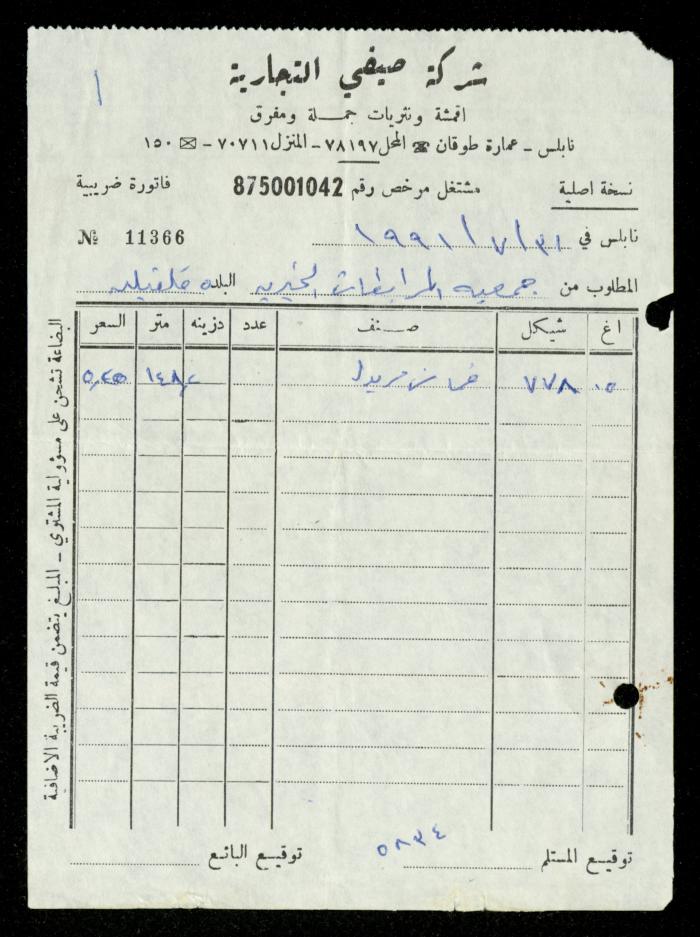 شركة صيفي التجارية
اقمشة ونثريات جملة ومفرق
نابلس - عمارة طوقان ☎ المحل ٧٨١٩٧ - المنزل ٧٠٧١١ - ✉ ١٥٠
نسخة اصلية مشتغل مرخص رقم 875001042 فاتورة ضريبية
نابلس في ٣١/٧/١٩٩١ № 11366
المطلوب من جمعيه المرابطات الخيريه البلده قلقيليه
اغ شيكل صنف عدد دزينه متر السعر
٠٥ ٧٧٨ قماش ١٤٨٫٢ ٥٫٢٥
البضاعة تشحن على مسؤولية المشتري - المبلغ يتضمن قيمة الضريبة الاضافية
٥٨٣٤
توقيع المستلم توقيع البائع